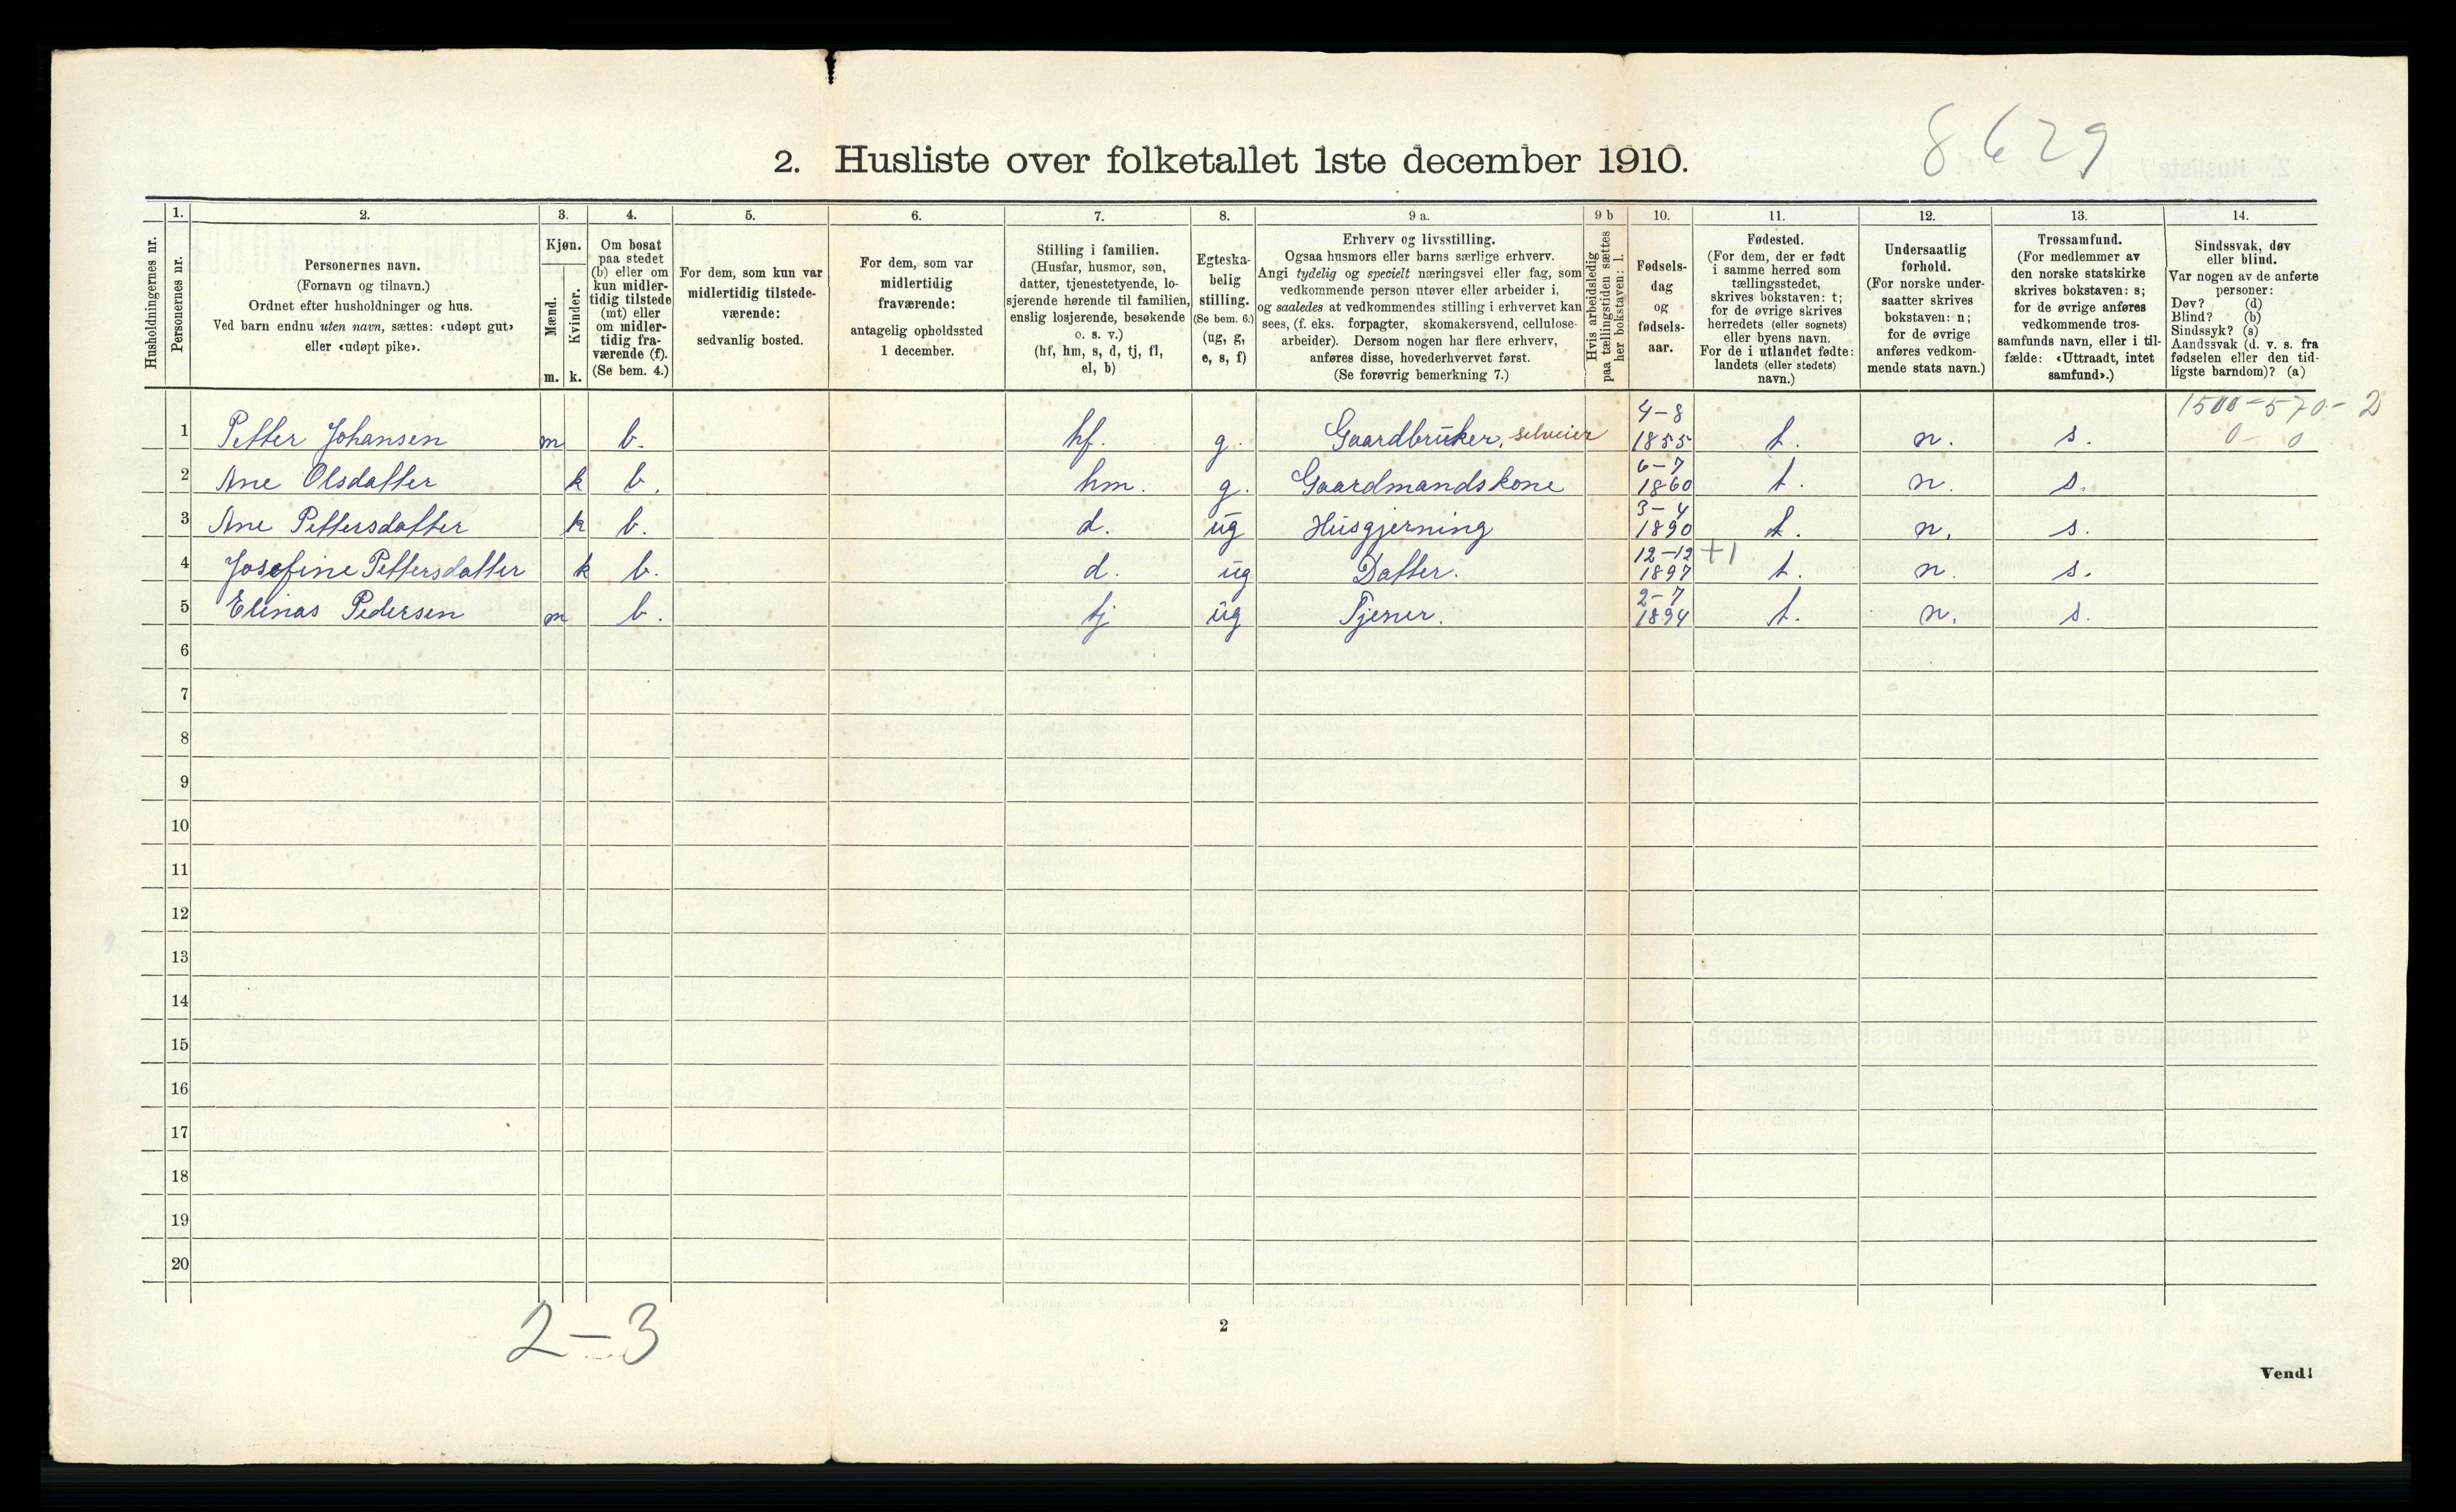 8629
2. Husliste over folketallet 1ste december 1910.
Husholdningernes nr.
1.
Personernes nr.
2.
Personernes navn.
(Fornavn og tilnavn.)
Ordnet efter husholdninger og hus.
Ved barn endnu uten navn, sættes: «udøpt gut»
eller «udøpt pike».
3.
Kjøn.
Mænd.
Kvinder.
m. k.
4.
Om bosat
paa stedet
(b) eller om
kun midler-
tidig tilstede
(mt) eller
om midler-
tidig fra-
værende (f).
(Se bem. 4.)
5.
For dem, som kun var
midlertidig tilstede-
værende:
sedvanlig bosted.
6.
For dem, som var
midlertidig
fraværende:
antagelig opholdssted
1 december.
7.
Stilling i familien.
(Husfar, husmor, søn,
datter, tjenestetyende, lo-
sjerende hørende til familien,
enslig losjerende, besøkende
o. s. v.)
(hf, hm, s, d, tj, fl,
el, b)
8.
Egteska-
belig
stilling.
(Se bem. 6.)
(ug, g,
e, s, f)
9 a.
Erhverv og livsstilling.
Ogsaa husmors eller barns særlige erhverv.
Angi tydelig og specielt næringsvei eller fag, som
vedkommende person utøver eller arbeider i,
og saaledes at vedkommendes stilling i erhvervet kan
sees, (f. eks. forpagter, skomakersvend, cellulose-
arbeider). Dersom nogen har flere erhverv,
anføres disse, hovederhvervet først.
(Se forøvrig bemerkning 7.)
9 b
Hvis arbeidsledig
paa tællingstiden sættes
her bokstaven: l.
10.
Fødsels-
dag
og
fødsels-
aar.
11.
Fødested.
(For dem, der er født
i samme herred som
tællingsstedet,
skrives bokstaven: t;
for de øvrige skrives
herredets (eller sognets)
eller byens navn.
For de i utlandet fødte:
landets (eller stedets)
navn.)
12.
Undersaatlig
forhold.
(For norske under-
saatter skrives
bokstaven: n;
for de øvrige
anføres vedkom-
mende stats navn.)
13.
Trossamfund.
(For medlemmer av
den norske statskirke
skrives bokstaven: s;
for de øvrige anføres
vedkommende tros-
samfunds navn, eller i til-
fælde: «Uttraadt, intet
samfund».)
14.
Sindssvak, døv
eller blind.
Var nogen av de anførte
personer:
Døv? (d)
Blind? (b)
Sindssyk? (s)
Aandssvak (d. v. s. fra
fødselen eller den tid-
ligste barndom)? (a)
1500-570-2
0- 0
1 Petter Johansen m b. hf. g. Gaardbruker, selveier 4-8 1855 t. n. s.
2 Ane Olsdatter k b. hm. g. Gaardmandskone 6-7 1860 t. n. s.
3 Ane Pettersdatter k b. d. ug Husgjerning 3-4 1890 t. n. s.
4 Josefine Pettersdatter k b. d. ug Datter. 12-12 1897 +1 t. n. s.
5 Elinas Pedersen m b. tj ug Tjener. 2-7 1894 t. n. s.
6
7
8
9
10
11
12
13
14
15
16
17
18
19
20
2-3
2
Vend!